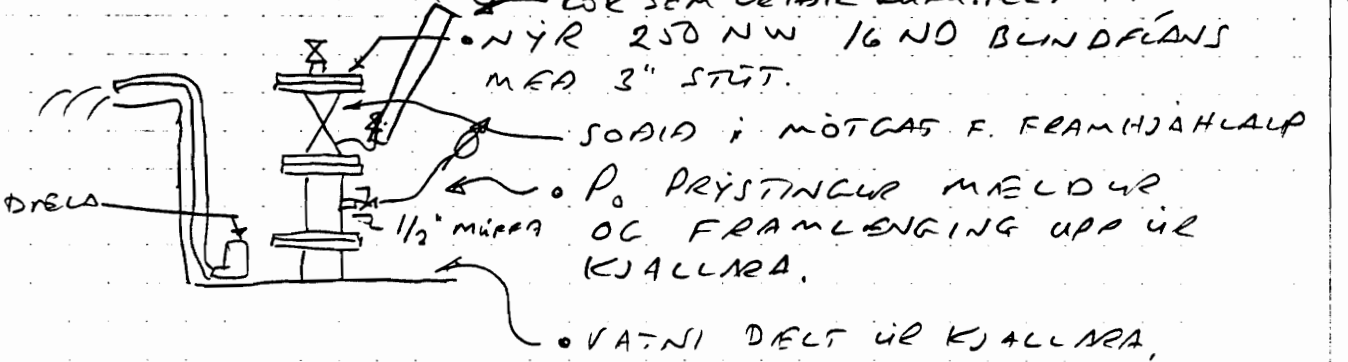 • NÝR 250 NW 16 ND BLINDFLANS
MEÐ 3" STÚT.
SOÐIÐ Í MÓTGAT F. FRAMHJÁHLAUP
DÆLA
• P₀ ÞRÝSTINGUR MÆLDUR
1/2" MÚFFA OG FRAMLENGING UPP ÚR
KJALLARA.
• VATNI DÆLT ÚR KJALLARA.